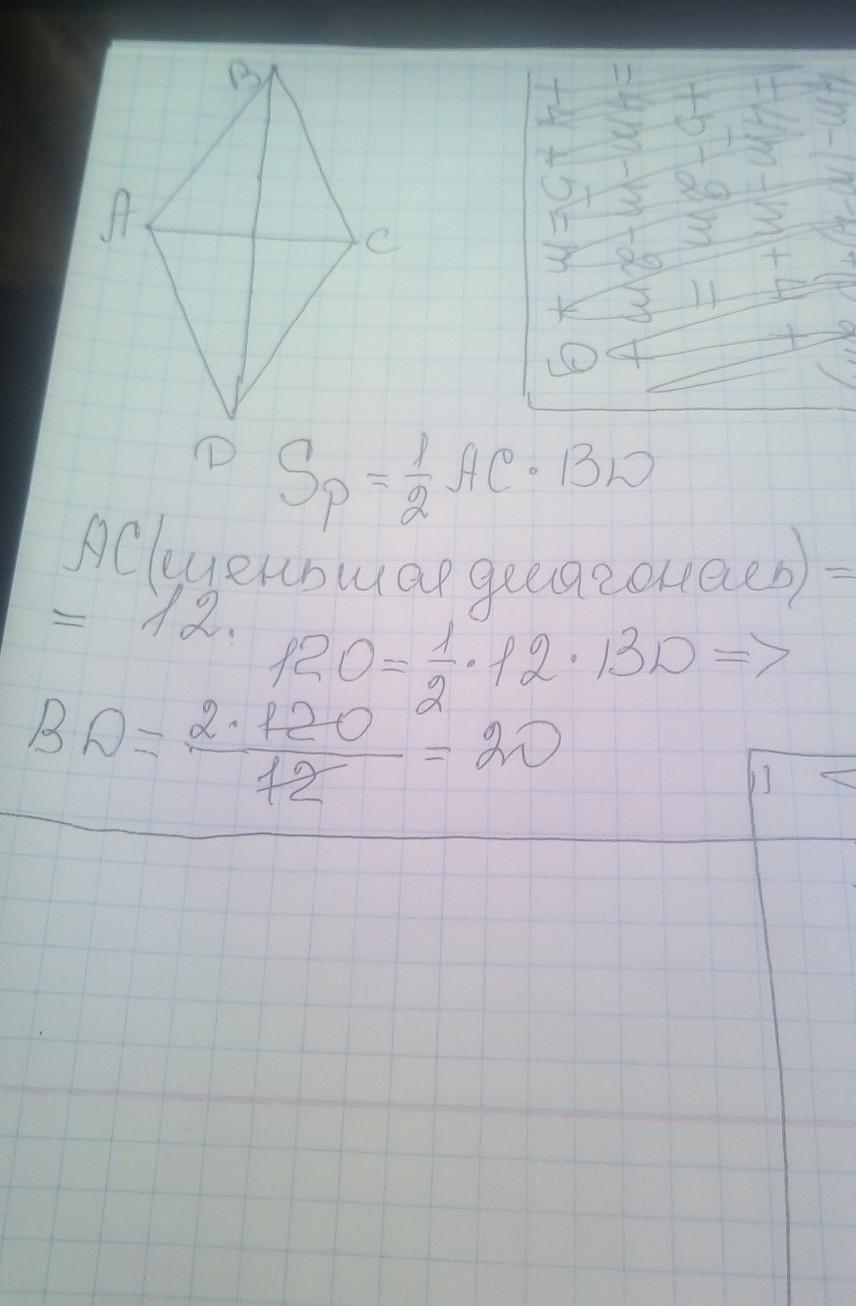 B
A
C
D
Sр = 1/2 AC · BD
AC (меньшая диагональ) =
= 12.
120 = 1/2 · 12 · BD =>
BD = 2 · 120 / 12 = 20